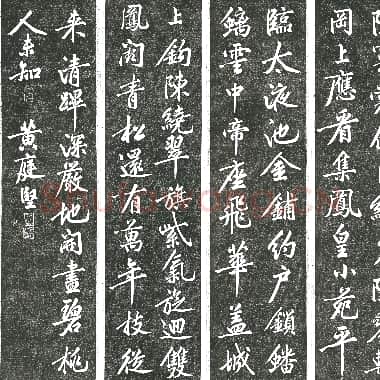 岡上應看集鳳皇小苑平
臨太液池金鋪約戶鎖蟠
螭雲中帝座飛華蓋城
上鈎陳繞翠旗紫氣旋迴雙
鳳闕青松還有萬年枝從
來清蹕深嚴地開盡碧桃
人未知 黄庭堅